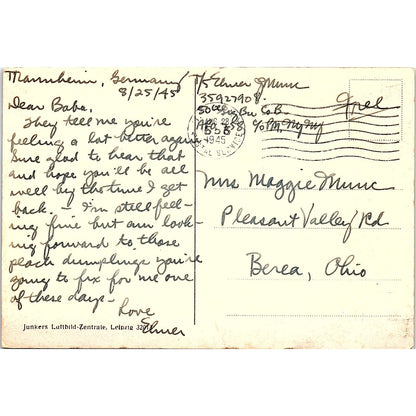 Mannheim, Germany
8/25/45
Dear Baba,
They tell me you're
feeling a lot better again
Sure glad to hear that
and hope you'll be all
well by the time I get
back. — I'm still feel-
ing fine but am look-
ing forward to, those
peach dumplings you're
going to fix for me one
of these days —
Love
Elmer
Junkers Luftbild-Zentrale, Leipzig
T/5 Elmer J Munc
35927908
Co B
APO
c/o PM, NY, NY
1945
Free
Mrs Maggie Munc
Pleasant Valley Rd
Berea, Ohio